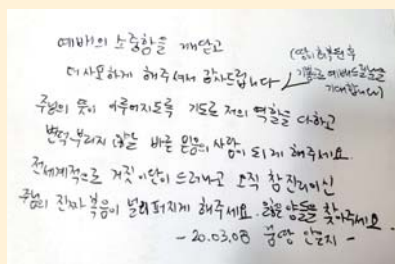 예배의 소중함을 깨닫고
더 사모하게 해주셔서 감사드립니다
(땅이 회복된 후
기쁨으로 예배드릴 날을
기대합니다)
주님의 뜻이 이루어지도록 기도로 저의 역할을 다하고
변덕부리지 않는 바른 믿음의 사람이 되게 해주세요.
전세계적으로 거짓 이단이 드러나고 오직 참 진리이신
주님의 진짜 복음이 널리 퍼지게 해주세요. 잃은 양들을 찾아주세요
- 20.03.08